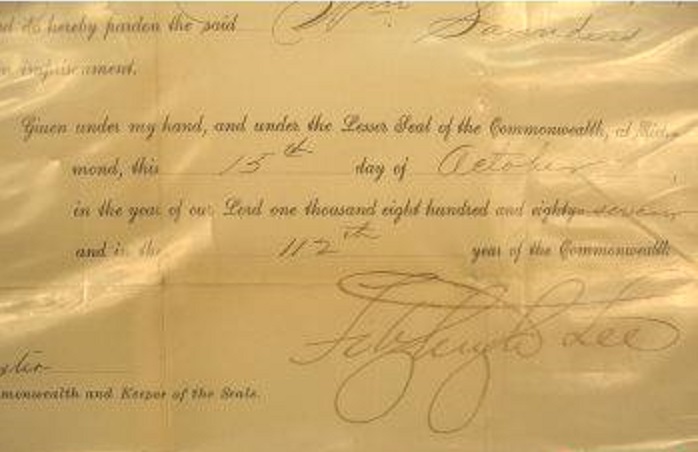 nd do hereby pardon the said Wm Saunders
imprisonment.
Given under my hand, and under the Lesser Seal of the Commonwealth, at Rich-
mond, this 15th day of October
in the year of our Lord one thousand eight hundred and eighty-seven
and in the 112th year of the Commonwealth
Fitzhugh Lee
monwealth and Keeper of the Seals.